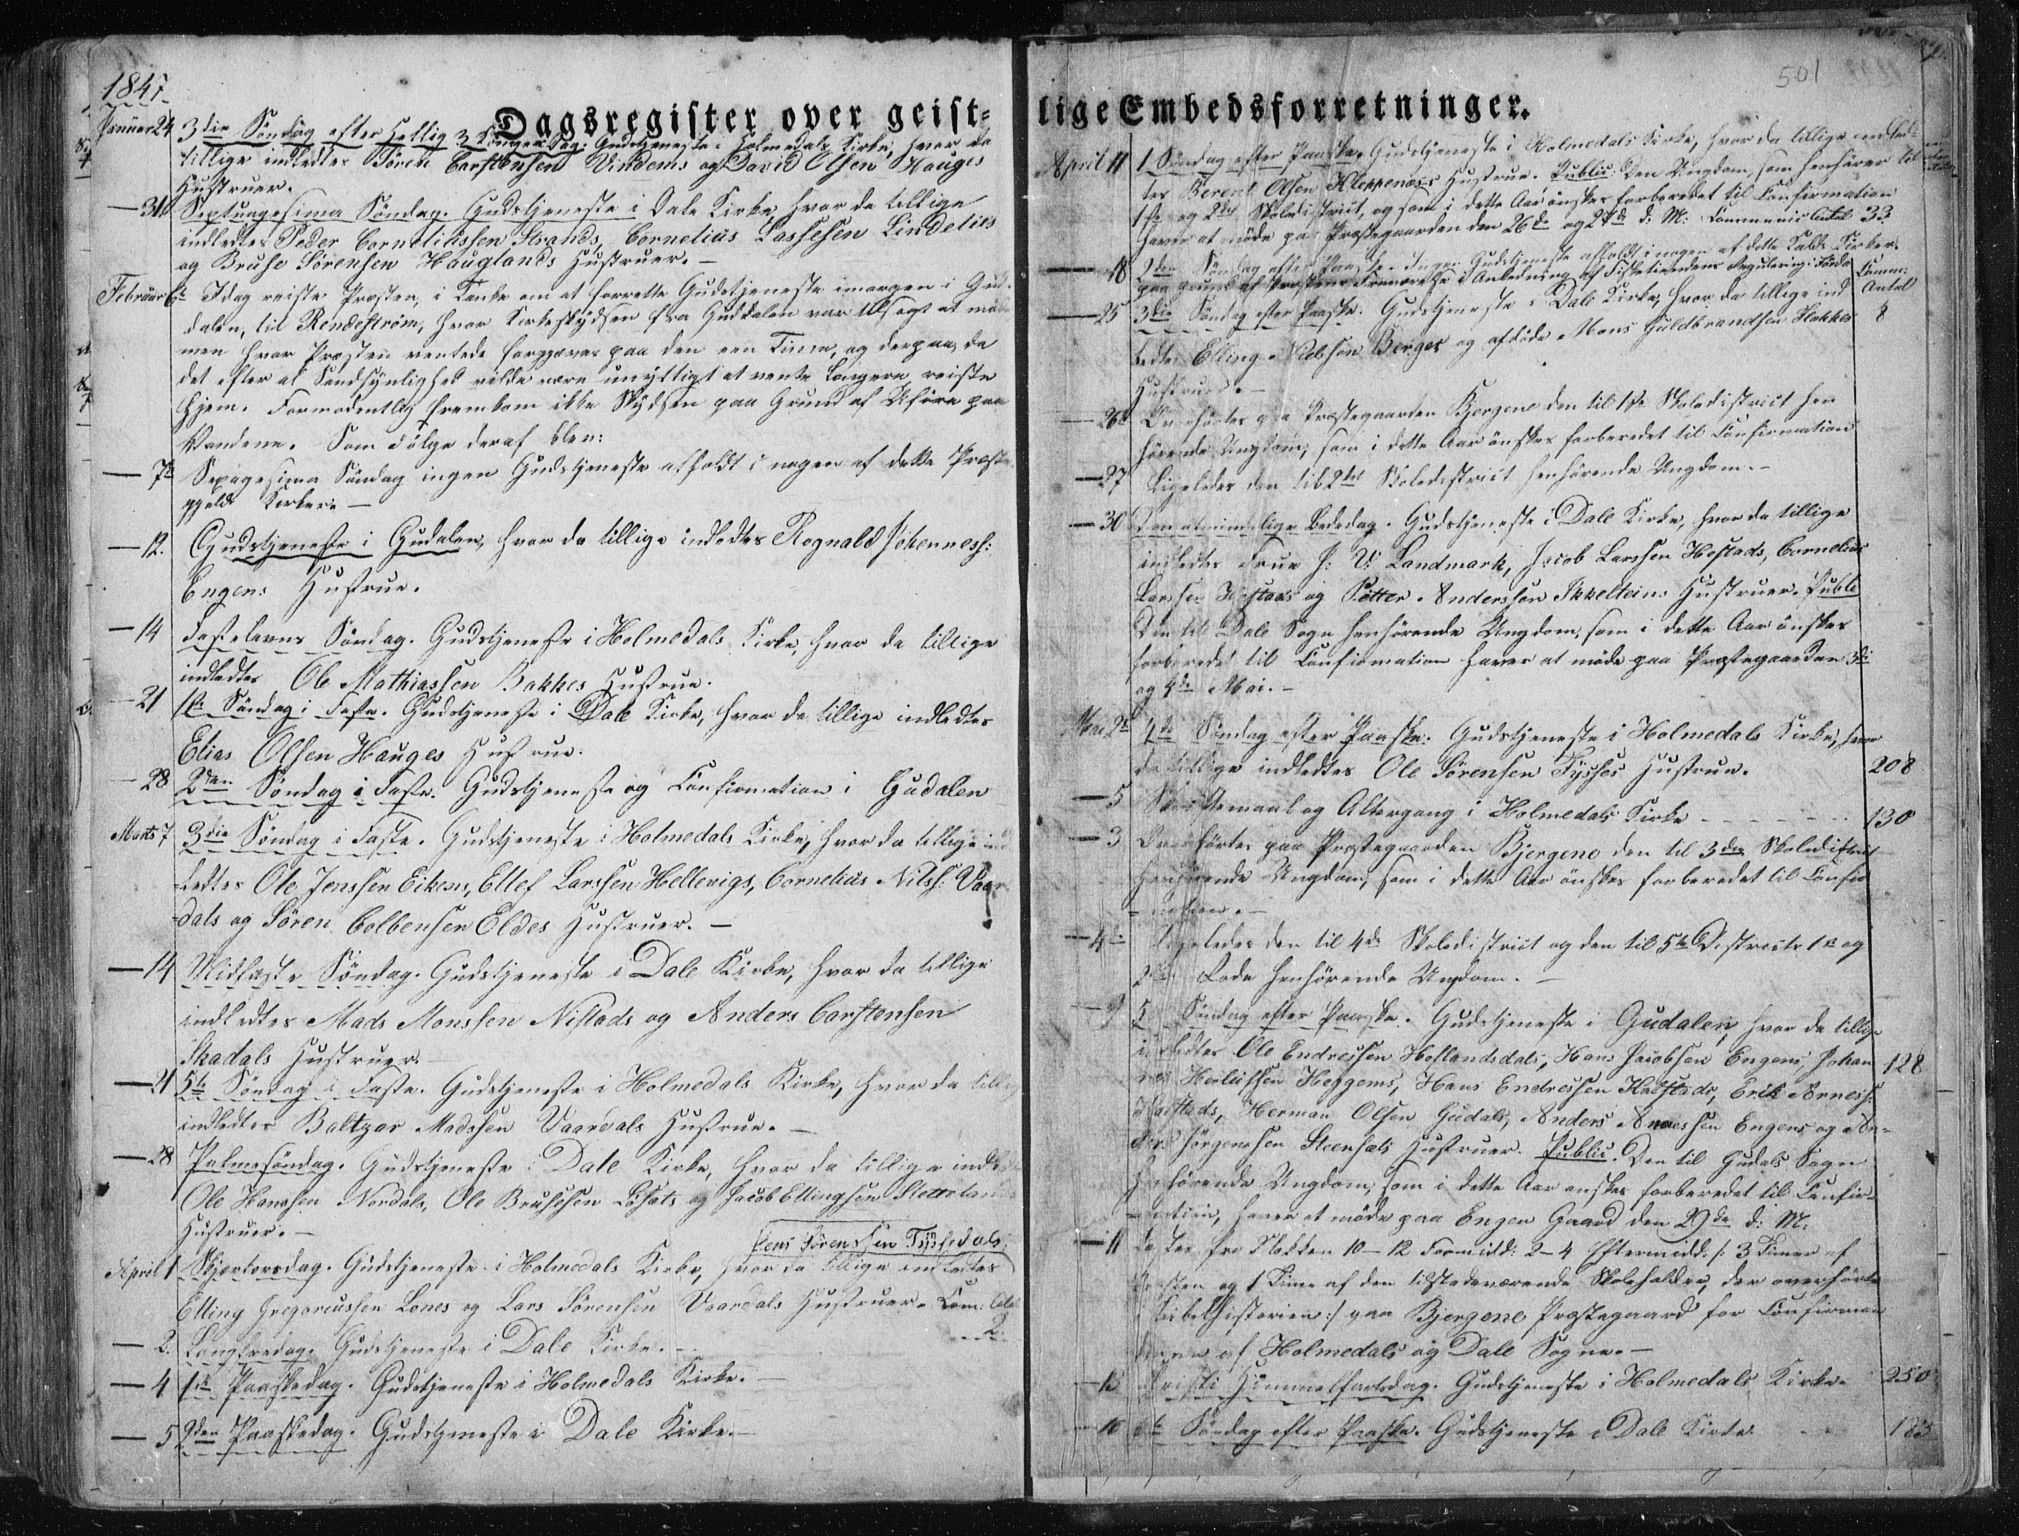 1847.
Dagsregister over geist=
Januar 24 3die Søndag efter Hellig 3 Konger Dag. Gudstjeneste i Holmedals Kirke, hvor da
tillige indledtes Søren Carstensen Vindems og David Olsen Hauges
Hustruer.
— 31 Septuagesima Søndag. Gudstjeneste i Dale Kirke hvor da tillige
indledtes Peder Corneliussen Strands, Cornelius Lassesen Lindelies
og Bruse Sørensen Hauglands Hustruer. —
Februar 6te Idag reiste Præsten, i Tanke om at forrette Gudstjeneste imorgen i Gu-
dalen, til Rendestrøm, hvor Kirkeskydsen fra Guddalen var tilsagt at møde
men hvor Præsten ventede forgjæves paa den een Time, og derpaa, da
det efter al Sandsynlighed vilde være unyttigt at vente længere reiste
hjem. Formodentlig fremkom ikke Skydsen paa Grund af Uføre paa
Vandene. Som Følge deraf blev:
— 7de Sexagesima Søndag ingen Gudstjeneste afholdt i nogen af dette Præste
gjelds Kirker. —
— 12. Gudstjeneste i Gudalen, hvor da tillige indledtes Rognald Johanness:
Engens Hustrue.
— 14 Fastelavns Søndag. Gudstjeneste i Holmedals Kirke, hvor da tillige
indledtes Ole Mathiassen Bakkes Hustrue.
— 21 1ste Søndag i Faste. Gudstjeneste i Dale Kirke, hvor da tillige indledtes
Elias Olsen Hauges Hustrue.
— 28 2den Søndag i Faste. Gudstjeneste og Confirmation i Gudalen
Marts 7 3die Søndag i Faste. Gudstjeneste i Holmedals Kirke, hvor da tillige ind
ledtes Ole Jenssen Eikens, Ellef Larssen Hellevigs, Cornelius Nilss: Vaar
dals og Søren Colbensen Eldes Hustruer. —
— 14 Midfaste Søndag. Gudstjeneste i Dale Kirke, hvor da tillige
indledtes Mads Monssen Nistads og Anders Carstensen
Skadals Hustruer. —
— 21 5te Søndag i Faste. Gudstjeneste i Holmedals Kirke, hvor da tillige
indledtes Baltzar Madssen Vaardals Hustrue. —
— 28 Palmesøndag. Gudstjeneste i Dale Kirke, hvor da tillige indledtes
Ole Hanssen Nordals, Ole Brusessen og Jacob Ellingsen
Hustruer. —
Jens Sørenssen Tyssedals
April 1 Skjertorsdag. Gudstjeneste i Holmedals Kirke, hvor da tillige indledtes
Elling Gregoriussen Lones og Lars Sørensen Vaardals Hustruer. Com: Antal
2
— 2. Langfredag. Gudstjeneste i Dale Kirke. —
— 4 1ste Paaskedag. Gudstjeneste i Holmedals Kirke. —
— 5 2den Paaskedag. Gudstjeneste i Dale Kirke. —
501
lige Embedsforretninger.
April 11 1 Søndag efter Paaske. Gudstjeneste i Holmedals Kirke, hvor da tillige indled
tes Berent Olsen Kleppenæs's Hustrue. Public: Den Ungdom, som henhører til
1ste og 2det Skoledistrict, og som i dette Aar ønskes forberedet til Confirmation
haver at møde paa Præstegaarden den 26de og 27de d: M: Communic: Antal 33
— 18 2den Søndag efter Paaske. Ingen Gudstjeneste afholdt i nogen af dette Kalds Kirker
paa Grund af Præstens Fraværelse i Anledning af Fisketiendens Regulering i Førde. Commun: Antal
— 25 3die Søndag efter Paaske. Gudstjeneste i Dale Kirke, hvor da tillige ind 8
ledtes Elling Nielsen Berges og afdøde Mons Guldbrandsen Hokkes
Hustruer. —
— 26de Overhørtes paa Præstegaarden Bjergene den til 1ste Skoledistrict hen
hørende Ungdom, som i dette Aar ønskes forberedet til Confirmation
— 27 Ligeledes den til 2det Skoledistrict henhørende Ungdom. —
— 30 Den almindelige Bededag. Gudstjeneste i Dale Kirke, hvor da tillige
indledtes Frue J: V: Landmark, Jacob Larssen Hestads, Cornelius
Larssen Hestads og Petter Anderssen Ikkelteins Hustruer. Public
Den til Dale Sogn henhørende Ungdom, som i dette Aar ønskes
forberedet til Confirmation haver at møde paa Præstegaarden 3die
og 4de Mai. —
Mai 2de 4de Søndag efter Paaske. Gudstjeneste i Holmedals Kirke, hvor
da tillige indledtes Ole Sørensen Tysses Hustrue. 208
— 5 Skriftemaal og Altergang i Holmedals Kirke - - - - - - - 130
— 3 Overhørtes paa Præstegaarden Bjergene den til 3die Skoledistrict
henhørende Ungdom, som i dette Aar ønskes forberedet til Confir
mation. —
— 4de Ligeledes den til 4de Skoledistrict og den til 5te Districts 1ste og
2den Rode henhørende Ungdom. —
— 9 5 Søndag efter Paaske. Gudstjeneste i Gudalen, hvor da tillige
indledtes Ole Endressen Hollandsdals, Hans Jacobsen Engens, Johan 128
nes Herlufssen Heggems, Hans Endressen Hatstads, Erik Arness:
Hatstads, Herman Olsen Gudals, Anders Anessen Engens og An-
ders Jørgenssen Steensæts Hustruer. Public: Den til Gudals Sogn
henhørende Ungdom, som i dette Aar ønskes forberedet til Confir-
mation, haver at møde paa Engen Gaard den 29de d: M:
— 11 Læstes fra Klokken 10—12 Formidd: 2—4 Eftermidd. /: 3 Timer af
Præsten og 1 Time af den tilstedeværende Skoleholder, der overhørte
Bibelhistorien :/ paa Bjergene Præstegaard for Confirman
derne af Holmedals og Dale Sogne. —
— 13 Christi Himmelfartsdag. Gudstjeneste i Holmedals Kirke. 250
— 16 6te Søndag efter Paaske. Gudstjeneste i Dale Kirke. 123